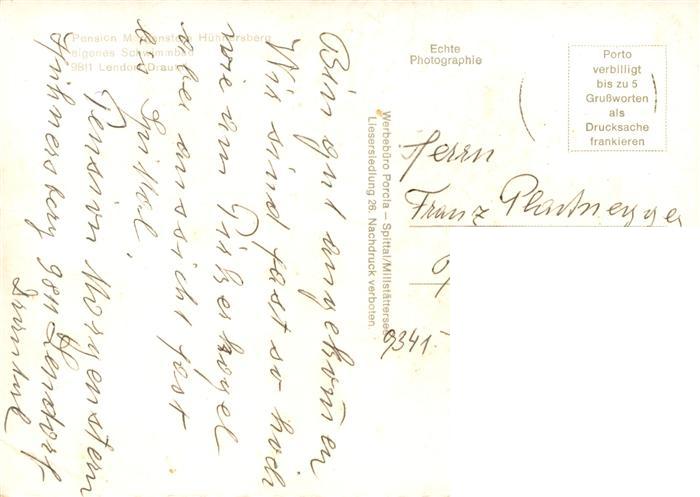 Pension Morgenstern Hühnersberg
eigenes Schwimmbad
9811 Lendorf Drautal
Bin gut angekom̄en
Wir sind fast so hoch
wie am
aber aussicht fast
bis Spittal.
Pension Morgenstern
Hühnersberg 9811 Lendorf
Drautal
Werbebüro Porcia – Spittal/Millstättersee
Liesersiedlung 26. Nachdruck verboten.
Echte
Photographie
Porto
verbilligt
bis zu 5
Grußworten
als
Drucksache
frankieren
Herrn
Franz Platnegger
9341